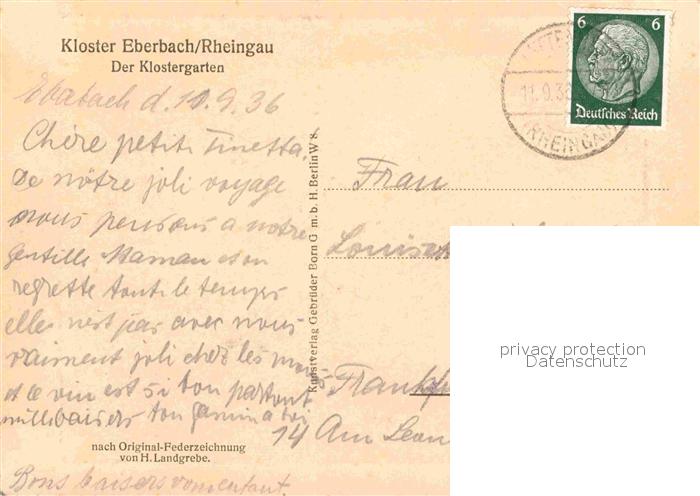 Kloster Eberbach/Rheingau
Der Klostergarten
6 6
Deutsches Reich
11.9.36
(RHEINGAU)
Ebabach d. 10.9.36
Chère petite Finetta.
De nôtre joli voyage
nous pensons a notre
gentille Maman et on
regrette tout le temps
elles n'est pas avec nous
vraiment joli chez les
et le vin est si bon partout
mille baisers ton
nach Original-Federzeichnung
von H. Landgrebe.
Bons baisers
Kunstverlag Gebrüder Born G. m. b. H. Berlin W 8.
Frau
Louise
Frankf
14 Am
privacy protection
Datenschutz